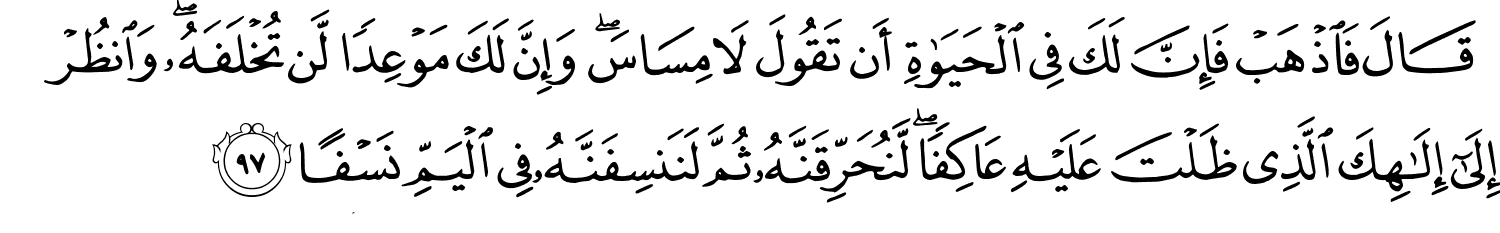 قَالَ فَٱذْهَبْ فَإِنَّ لَكَ فِى ٱلْحَيَوٰةِ أَن تَقُولَ لَا مِسَاسَ ۖ وَإِنَّ لَكَ مَوْعِدًا لَّن تُخْلَفَهُۥ ۖ وَٱنظُرْ
إِلَىٰٓ إِلَـٰهِكَ ٱلَّذِى ظَلْتَ عَلَيْهِ عَاكِفًا ۖ لَّنُحَرِّقَنَّهُۥ ثُمَّ لَنَنسِفَنَّهُۥ فِى ٱلْيَمِّ نَسْفًا ٩٧